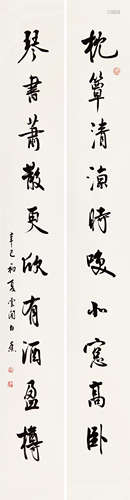 枕簟清涼時嗅小窗高卧
琴書蕭散更欣有酒盈樽
辛巳初夏雲間白蕉